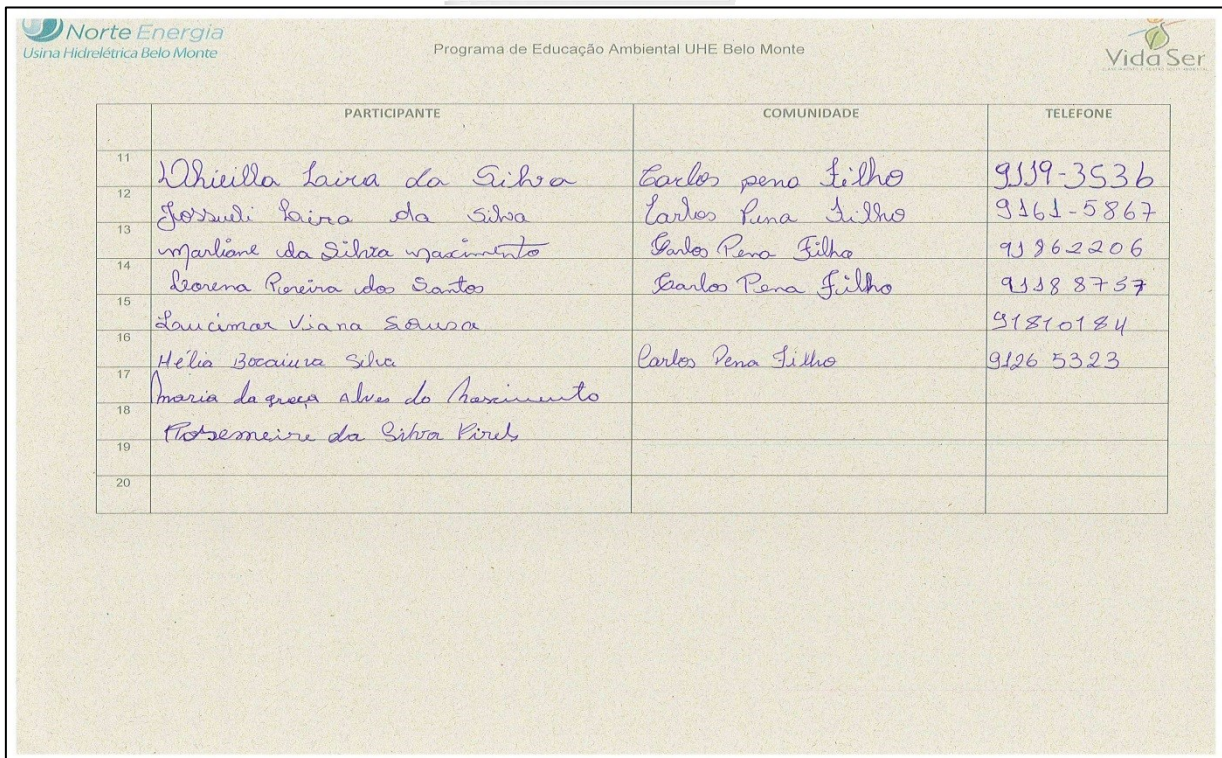 Norte Energia
Usina Hidrelétrica Belo Monte
Programa de Educação Ambiental UHE Belo Monte
Vida Ser
PARTICIPANTE COMUNIDADE TELEFONE
11 Laira da Silva Carlos pena Filho 9119-3536
12 Laira da Silva Carlos Pena Filho 9161-5867
13 Marliane da Silva nascimento Carlos Pena Filho 91862206
14 Lorena Pereira dos Santos Carlos Pena Filho 91188757
15 Laucimar Viana Sousa 91810184
16 Hélia Bocaiuva Silva Carlos Pena Filho 9126 5323
17 maria da graça Alves do Nascimento
18 Rosemeire da Silva Pires
19
20